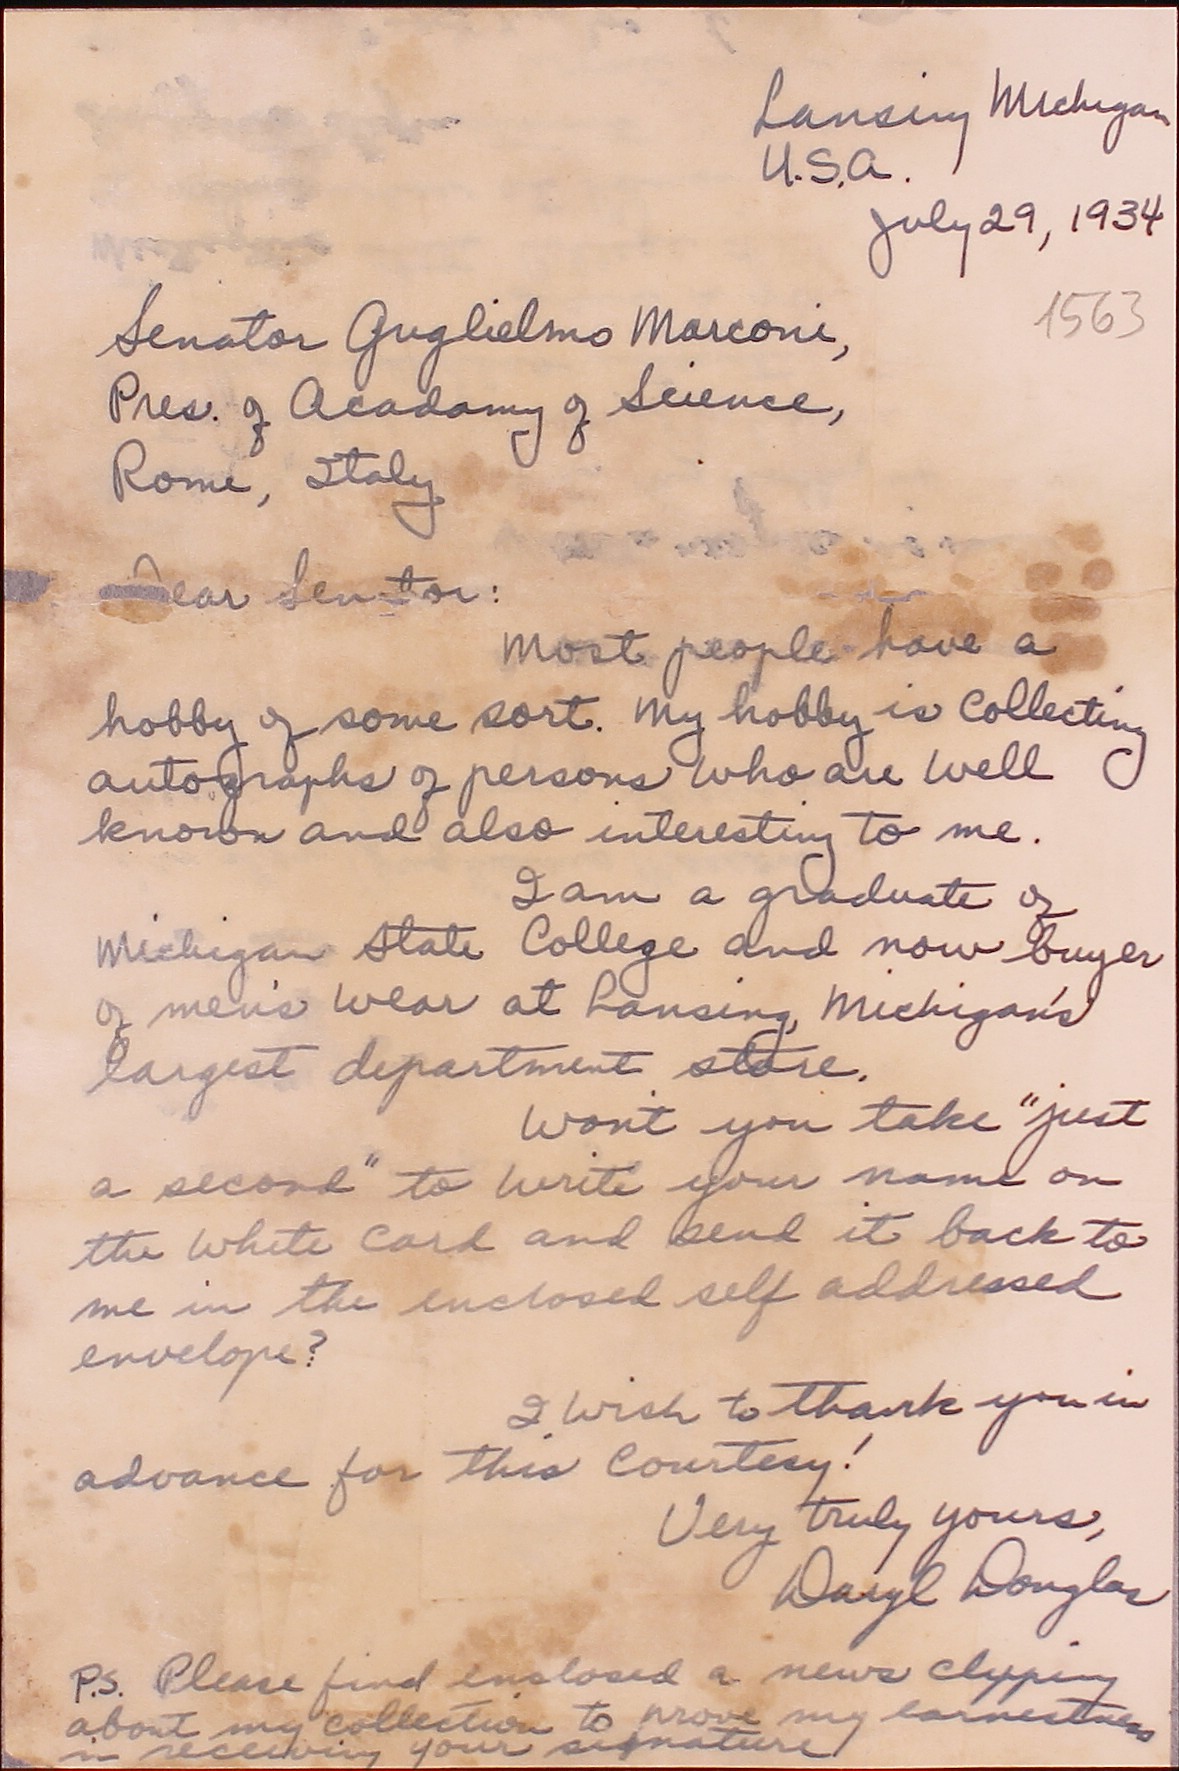 Lansing Michigan
U.S.A.
July 29, 1934
1563
Senator Guglielmo Marconi,
Pres. of Acadamy of Science,
Rome, Italy
Dear Sentor:
Most people have a
hobby of some sort. My hobby is Collecting
autographs of persons who are well
known and also interesting to me.
I am a graduate of
Michigan State College and now buyer
of men's wear at Lansing, Michigan's
largest department store.
Won't you take "just
a second" to write your name on
the white card and send it back to
me in the enclosed self addressed
envelope?
I wish to thank you in
advance for this Courtesy!
Very truly yours,
Daryl Douglas
P.S. Please find enclosed a news clipping
about my collection to prove my earnestness
in receiving your signature